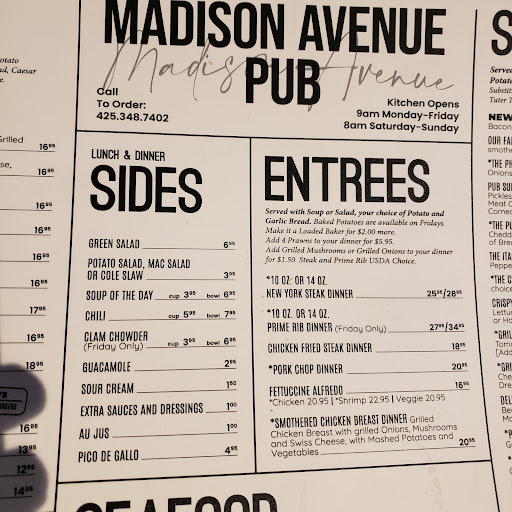 MADISON AVENUE
Madison Avenue
PUB
Call
To Order:
425.348.7402
Kitchen Opens
9am Monday-Friday
8am Saturday-Sunday
LUNCH & DINNER
SIDES
GREEN SALAD 6⁹⁵
POTATO SALAD, MAC SALAD
OR COLE SLAW 3⁹⁵
SOUP OF THE DAY cup 3⁹⁵ bowl 6⁹⁵
CHILI cup 5⁹⁵ bowl 7⁹⁵
CLAM CHOWDER
(Friday Only) cup 3⁹⁵ bowl 6⁹⁵
GUACAMOLE 2⁹⁵
SOUR CREAM 1⁵⁰
EXTRA SAUCES AND DRESSINGS 1⁰⁰
AU JUS 1⁰⁰
PICO DE GALLO 4⁹⁵
ENTREES
Served with Soup or Salad, your choice of Potato and
Garlic Bread. Baked Potatoes are available on Fridays.
Make it a Loaded Baker for $2.00 more.
Add 4 Prawns to your dinner for $5.95.
Add Grilled Mushrooms or Grilled Onions to your dinner
for $1.50. Steak and Prime Rib USDA Choice.
*10 OZ. OR 14 OZ.
NEW YORK STEAK DINNER 25⁹⁵/28⁹⁵
*10 OZ. OR 14 OZ.
PRIME RIB DINNER (Friday Only) 27⁹⁵/34⁹⁵
CHICKEN FRIED STEAK DINNER 18⁹⁵
*PORK CHOP DINNER 20⁹⁵
FETTUCINE ALFREDO 16⁹⁵
*Chicken 20.95 | *Shrimp 22.95 | Veggie 20.95
*SMOTHERED CHICKEN BREAST DINNER Grilled
Chicken Breast with grilled Onions, Mushrooms
and Swiss Cheese, with Mashed Potatoes and
Vegetables 20⁹⁵
SEAFOOD
Caesar
16⁹⁵
16⁹⁵
16⁹⁵
16⁹⁵
16⁹⁵
16⁹⁵
17⁹⁵
16⁹⁵
18⁹⁵
16⁹⁵
13⁹⁵
12⁹⁵
14⁹⁵
S
Served
Potato
Substit
Tater T
NEW
Bacon
OUR FA
smothe
Onions
PUB SU
Pickles
Meat C
Corned
Chedd
of Bree
THE ITA
Peppe
choice
CRISPY
Lettu
or Ho